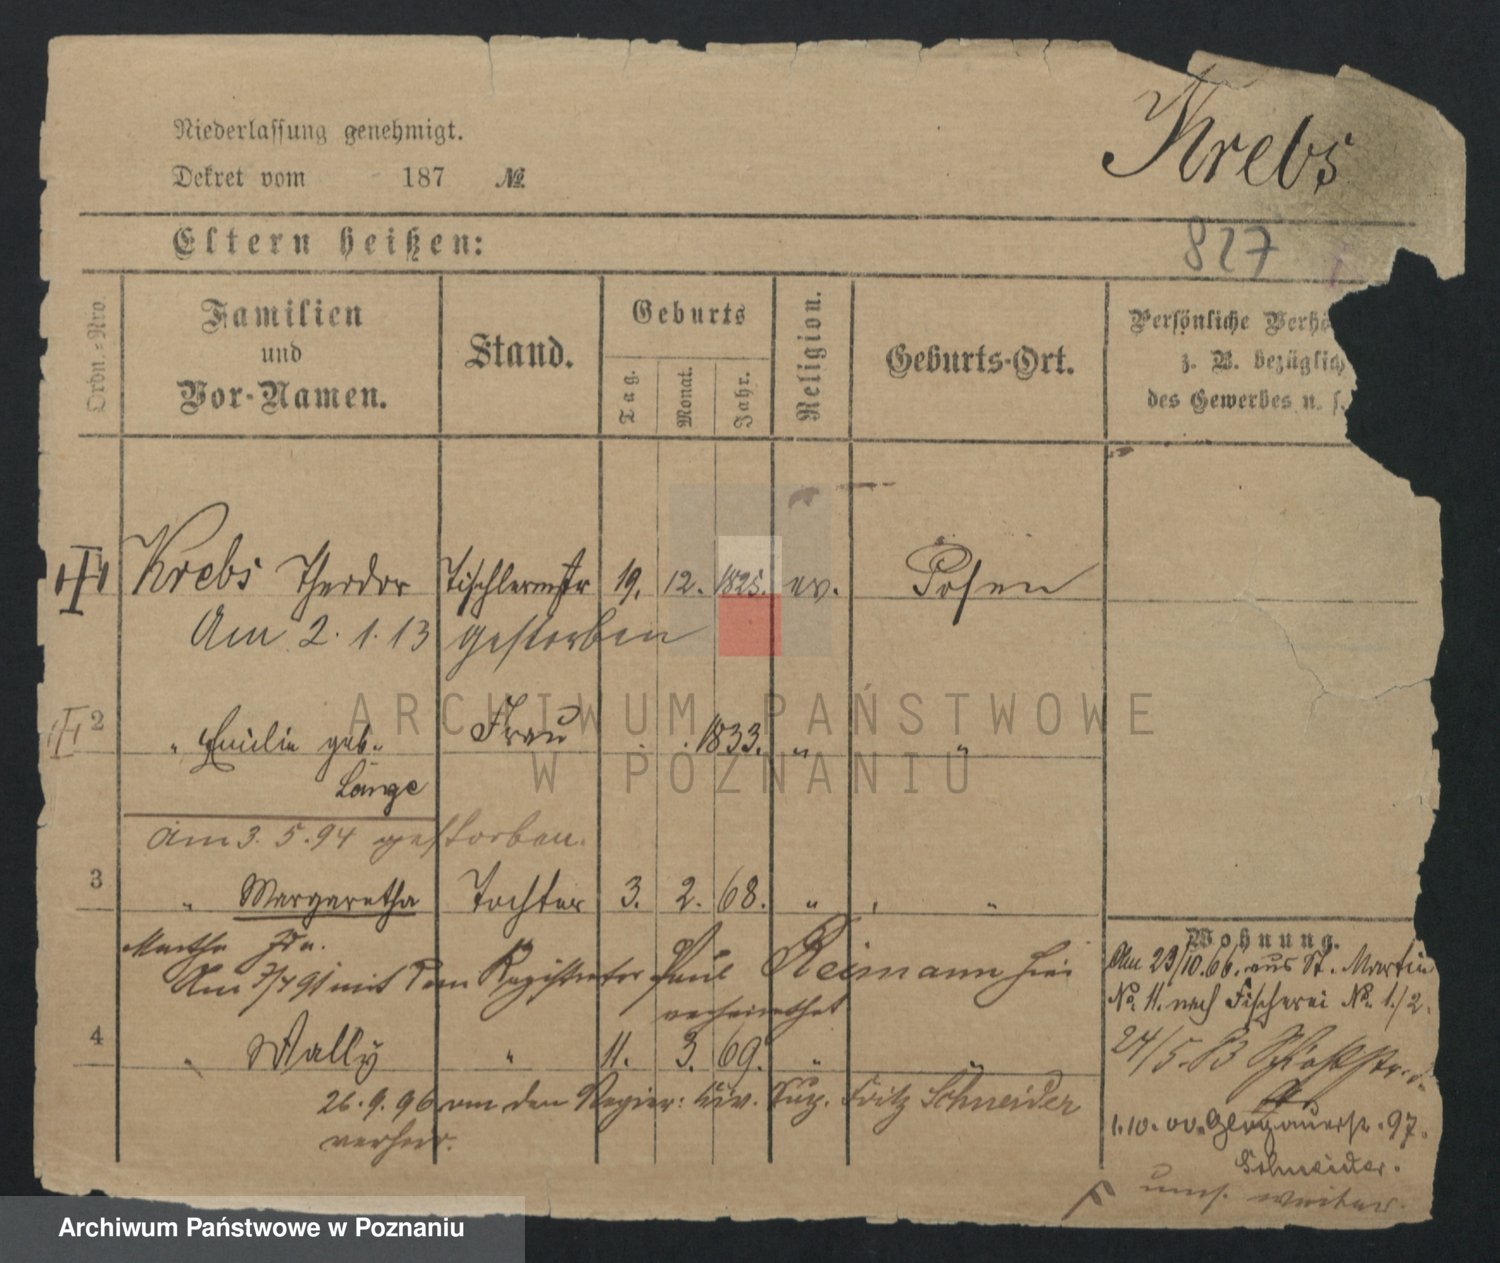 Krebs
Niederlassung genehmigt.
Dekret vom 187 №
Eltern heißen:
827
Ordn.-Nro.
Familien
und
Vor-Namen.
Stand.
Geburts
Tag.
Monat.
Jahr.
Religion.
Geburts-Ort.
Persönliche Verhä
z. B. bezüglich
des Gewerbes u. s.
Krebs Theodor Tischlermstr 19. 12. 1825. ev. Posen
Am 2. 1. 13 gestorben
2 " Emilie geb. Frau 1833. " "
Lange
Am 3. 5. 94 gestorben.
3 " Margaretha Tochter 3. 2. 68. " "
Martha Ida.
Am 7/4 91 mit dem Registrator Paul Reimann hier
verheirathet
4 " Wally " 11. 3. 69. " "
26. 9. 96 von den Regier: Civ. Sup. Fritz Schneider
verheir.
Wohnung.
Am 23/10. 66. aus St. Martin
No. 11. nach Fischerei No. 1./2.
24/5. 83
1. 10. 00. Glogauerstr. 97.
Schneider.
ums. weiter.
ARCHIWUM PAŃSTWOWE
W POZNANIU
Archiwum Państwowe w Poznaniu